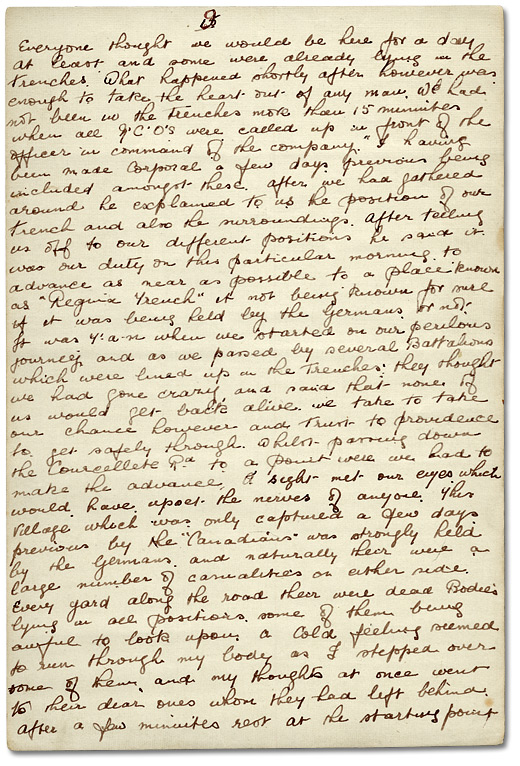 8
Everyone thought we would be here for a day
at least and some were already lying in the
trenches. What happened shortly after however was
enough to take the heart out of any man. We had
not been in the trenches more than 15 minuites
when all N.C.O's were called up in front of the
officer in command of the company." I having
been made Corporal a few days previous being
included amongst these. After we had gathered
around he explained to us the position of our
trench and also the surroundings. After telling
us off to our different positions he said it
was our duty on this particular morning to
advance as near as possible to a place known
as "Regina Trench" it not being known for sure
if it was being held by the Germans or not.
It was 4. a.m when we started on our perilous
journey and as we passed by several Battalions
which were lined up in the trenches they thought
we had gone crazy, and said that none of
us would get back alive. We take to take
our chance however and trust to providence
to get safely through. Whilst passing down
the Courcellete Rd to a point were we had to
make the advance, A sight met our eyes which
would have upset the nerves of anyone. This
village which was only captured a few days
previous by the "Canadians" was strongly held
by the Germans and naturally their were a
large number of casualities on either side.
Every yard along the road their were dead Bodies
lying in all positions some of them being
awful to look upon. a Cold feeling seemed
to run through my body as I stepped over
some of them, and my thoughts at once went
to their dear ones whom they had left behind.
After a few minuites rest at the starting point